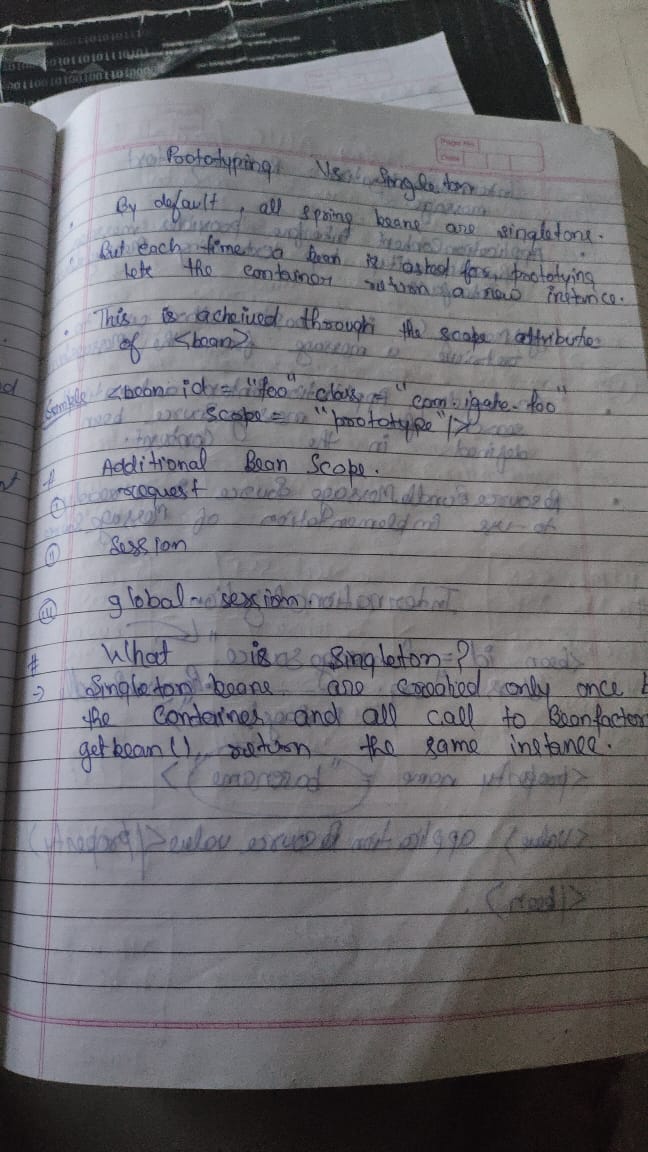 Page No.
Date
Prototyping Vs Singleton
• By default, all spring beans are singletons.
• But each time a bean is asked for, prototying
lets the container return a new instance.
• This is acheived through the scope attribute
of <bean>
Sample <bean id = "foo" class = "com.igate.foo"
scope = "prototype"/>
# Additional Bean Scope.
(i) request
(ii) Session
(iii) global-session.
# What is Singleton?
→ Singleton beans are created only once
the Container and all call to Beanfactor
getbean() return the same instance.